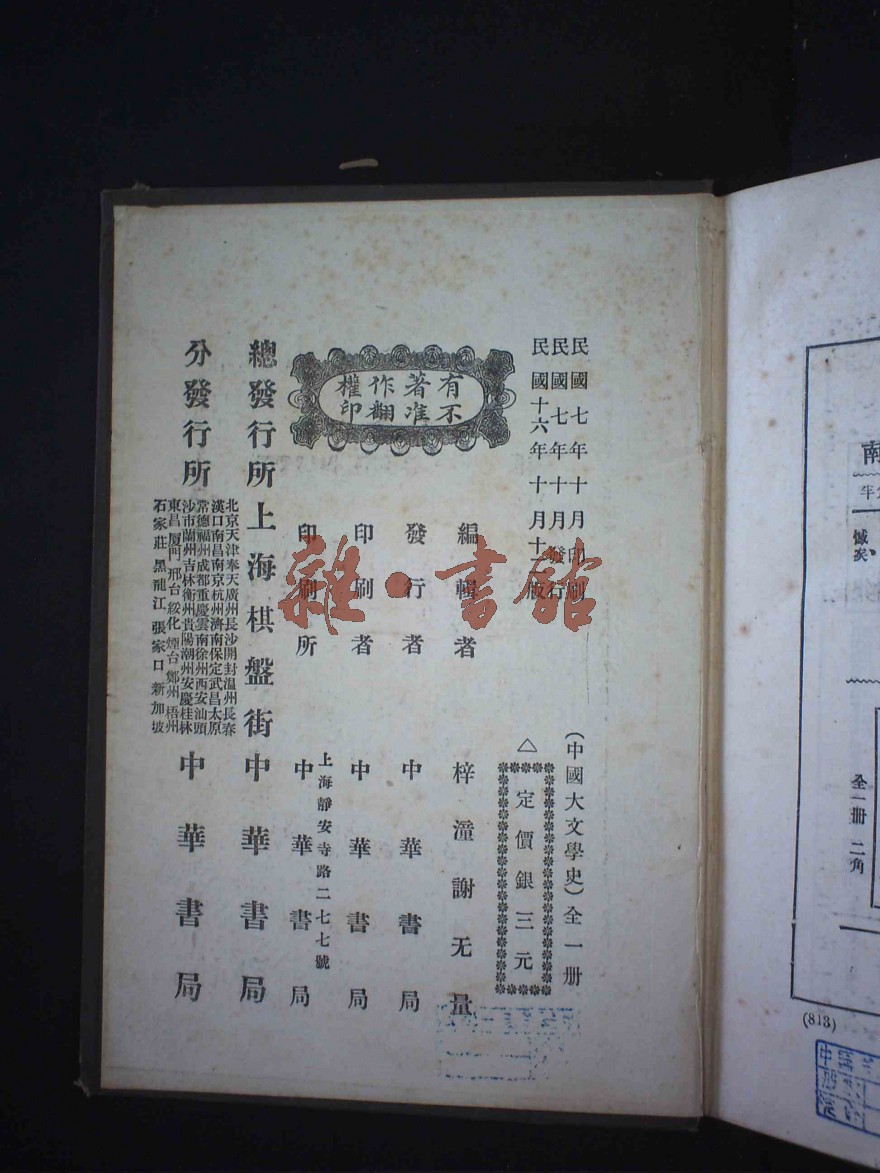 民國七年十月印刷
民國七年十月發行
民國十六年十月十 版
(中國大文學史)全一册
△定價銀三元
有著作權
不准翻印
編輯者 梓潼謝无量
發行者 中華書局
印刷者 中華書局
上海靜安寺路二七七號
印刷所 中華書局
總發行所 上海棋盤街 中華書局
分發行所
北京天津奉天廣州長沙開封温州長春
漢口南昌南京杭州濟南保定武昌太原
常德福州成都重慶雲南徐州西安汕頭
沙市蘭州吉林衡州貴陽潮州安慶桂林
東昌厦門邢台綏化煙台鄭州梧州
石家莊黑龍江張家口新加坡
中華書局
雜·書館
南
全一册 二角
(813)